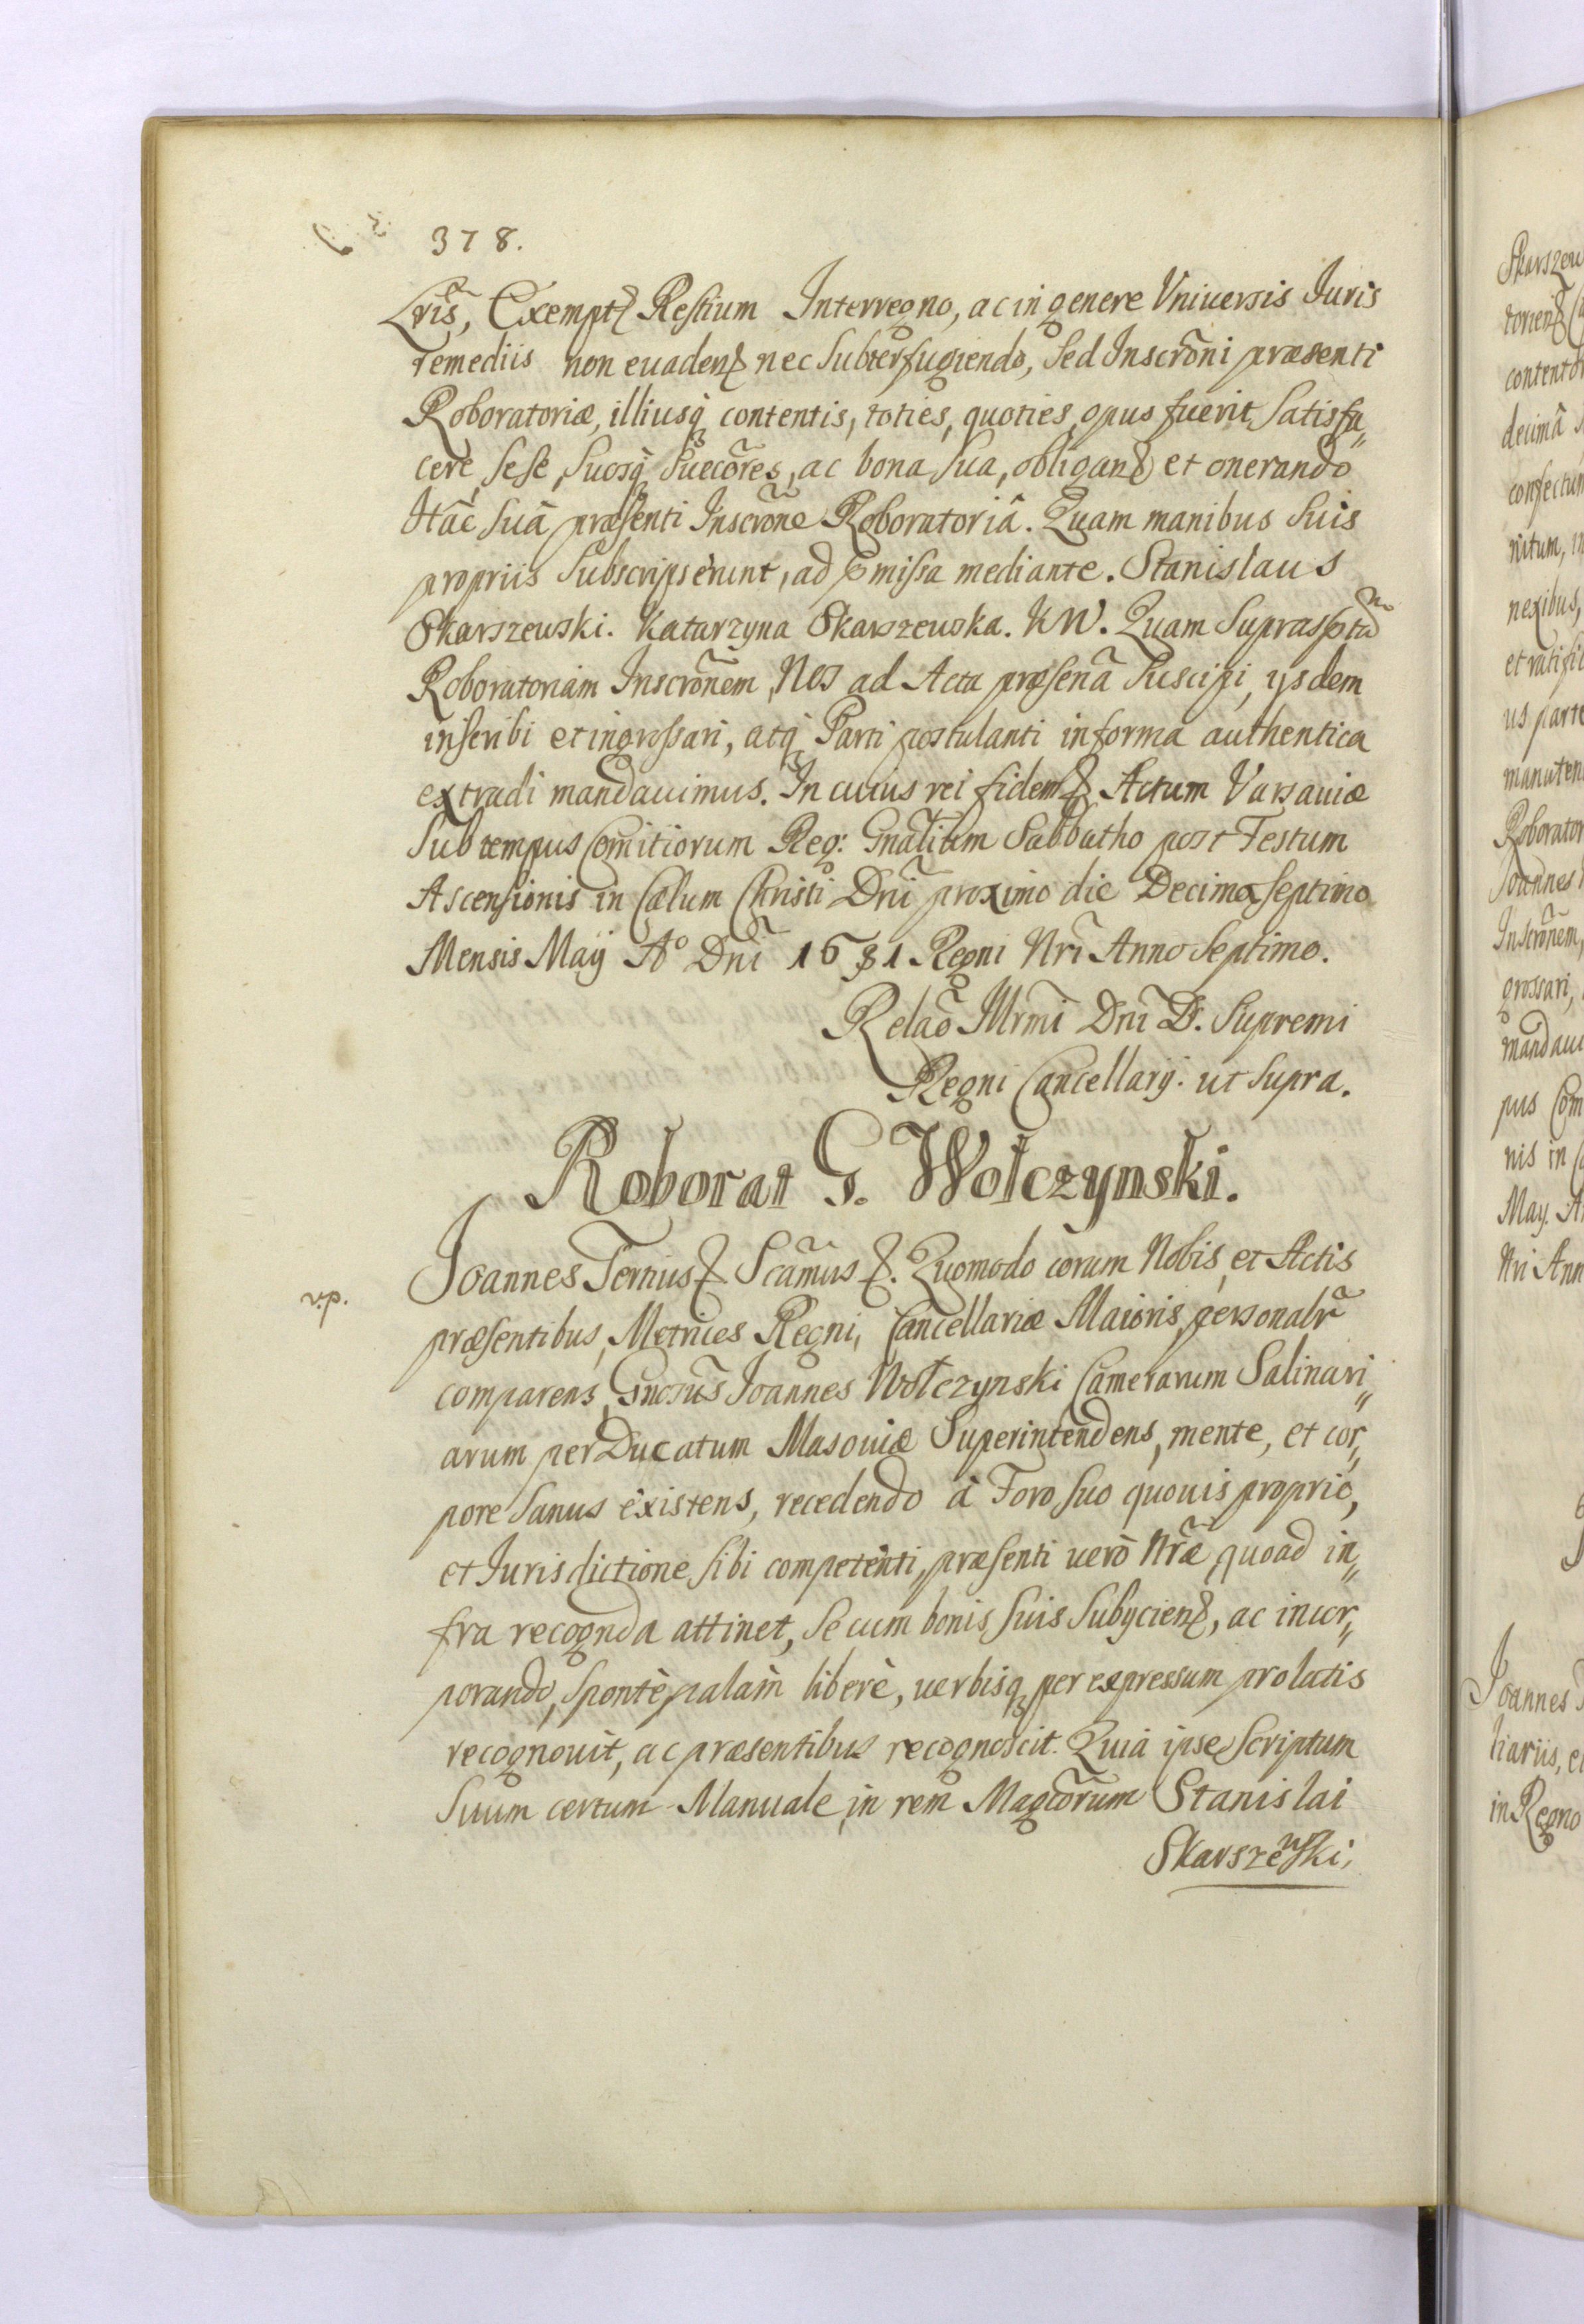 378.
Lris, Exempt Restium Interregno, ac in genere Vniuersis Iuris
remediis non euaden nec Subterfugiendo, Sed Inscrõni præsenti
Roboratoriæ, illiusq contentis, toties, quoties, opus fuerit, Satisfa„
cere, Sese, Suosq Suecõres, ac bona Sua, obligan et onerando
Hâc Suâ præsenti Inscrõne Roboratoriâ. Quam manibus Suis
propriis Subscripserunt, ad præmissa mediante. Stanislaus
Skarszewski. Katarzyna Skarszewska. KW. Quam Suprasptã
Roboratoriam Inscrõnem, Nos ad Acta præsenã Suscipi, ysdem
inseribi et ingrossari, atq Parti postulanti in forma authentica
extradi mandauimus. In cuius rei fidem Actum Varsauiæ
Sub tempus Comitiorum Reg: Gnãlium Sabbatho post Festum
Ascensionis in Cælum Christi Dnĩ proximo die Decima Septima
Mensis Maÿ Aº Dnĩ 1681 Regni Nrĩ Anno Septimo.
Relaõ Illrmĩ Dnĩ D. Supremi
Regni Cancellarÿ. ut Supra.
Roborat G. Wołczynski.
Joannes Tertius Scãmus. Quomodo coram Nobis, et Actis
præsentibus, Metrices Regni, Cancellariæ Maioris, personalr̃
comparens, Gnosũs Joannes Wołczynski Camerarum Salinari„
arum per Ducatum Masouiæ Superintendens, mente, et cor„
pore Sanus existens, recedendo â Foro Suo quouis proprio,
et Iurisdictione Sibi competenti, præsenti uerò Nrã̃e, quoad in„
fra recognda attinet, Se cum bonis Suis Subÿcien, ac incor„
porando, Spontè, palàm liberè, uerbisq per expressum prolatis
recognouit, ac præsentibus recognoscit. Quia ipse Scriptum
Suum certum Manuale, in rem Magcõrum Stanislai
Skarszewski,